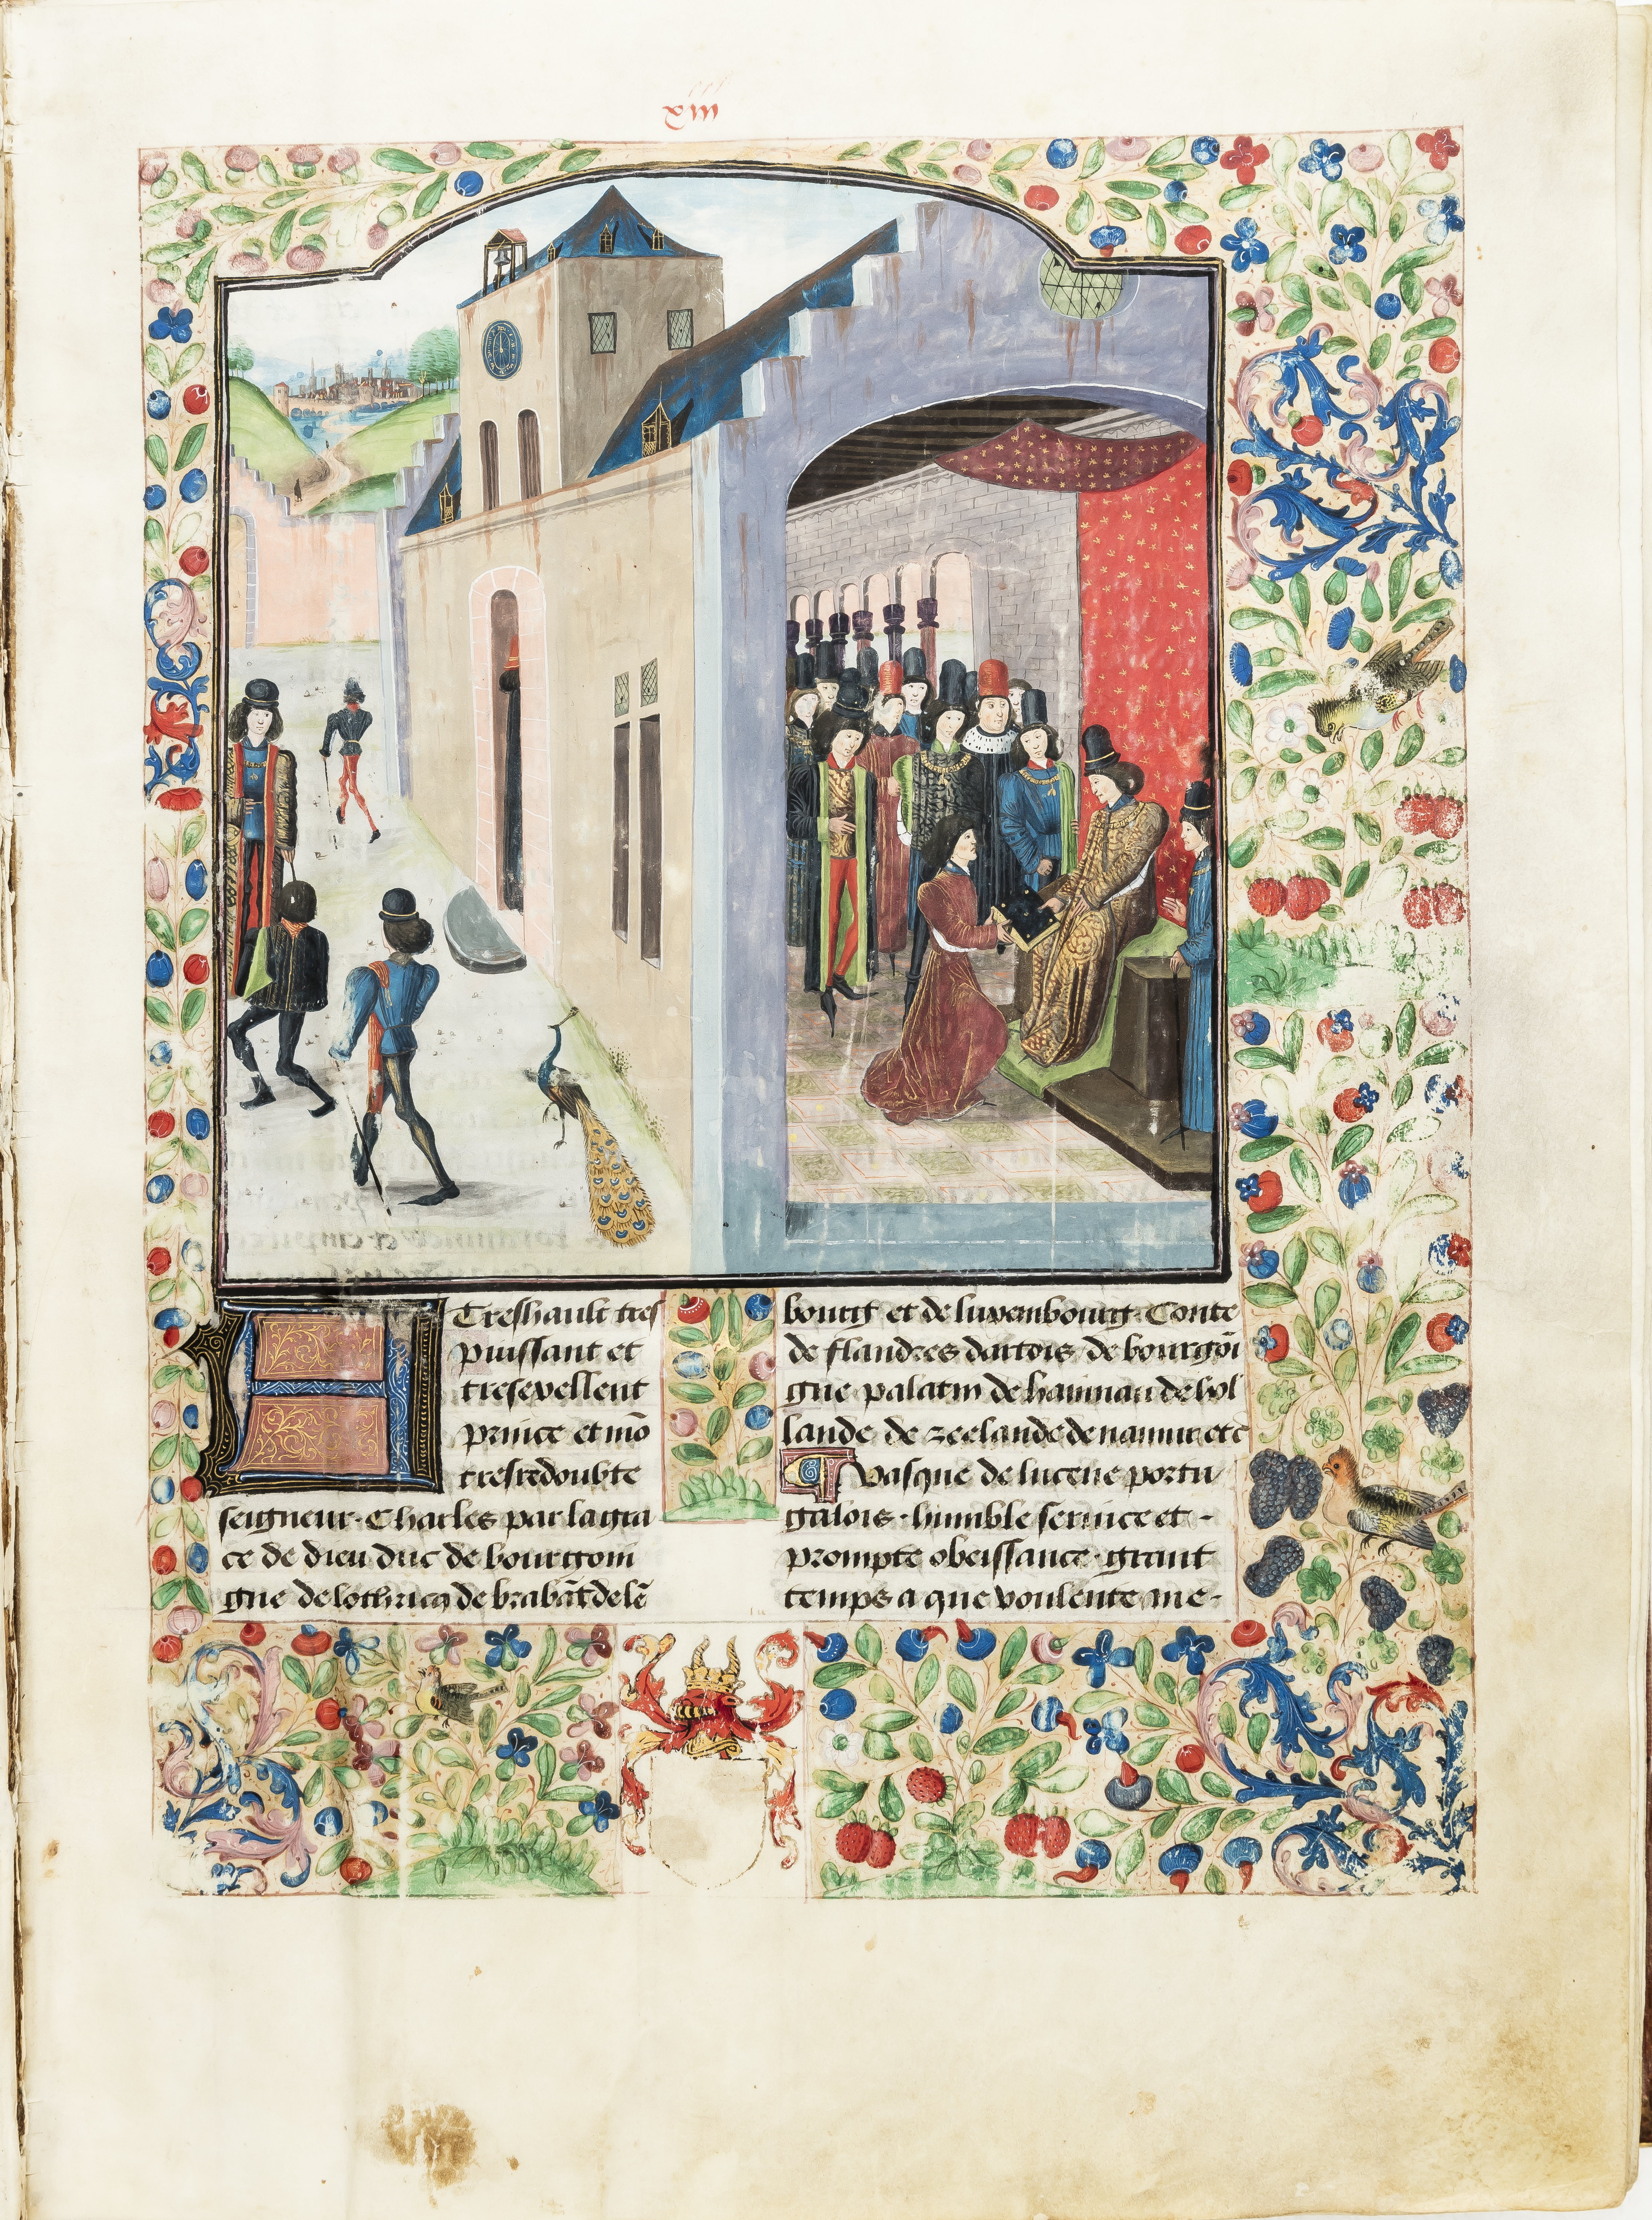 xiii
A Treshault tres
puissant et
tresexellent
prince et mõ
tresredoubte
seigneur. Charles par la gra
ce de dieu duc de bourgoin
gne de lothricq de brabãt de lẽ
bourg et de luxembourg. Conte
de flandres dartois de bourgõi
gne palatin de hainnau de hol
lande de zeelande de namur etc
Vasque de lucene portu
galois. humble seruice et
prompte obeissance. grant
temps a que voulente me